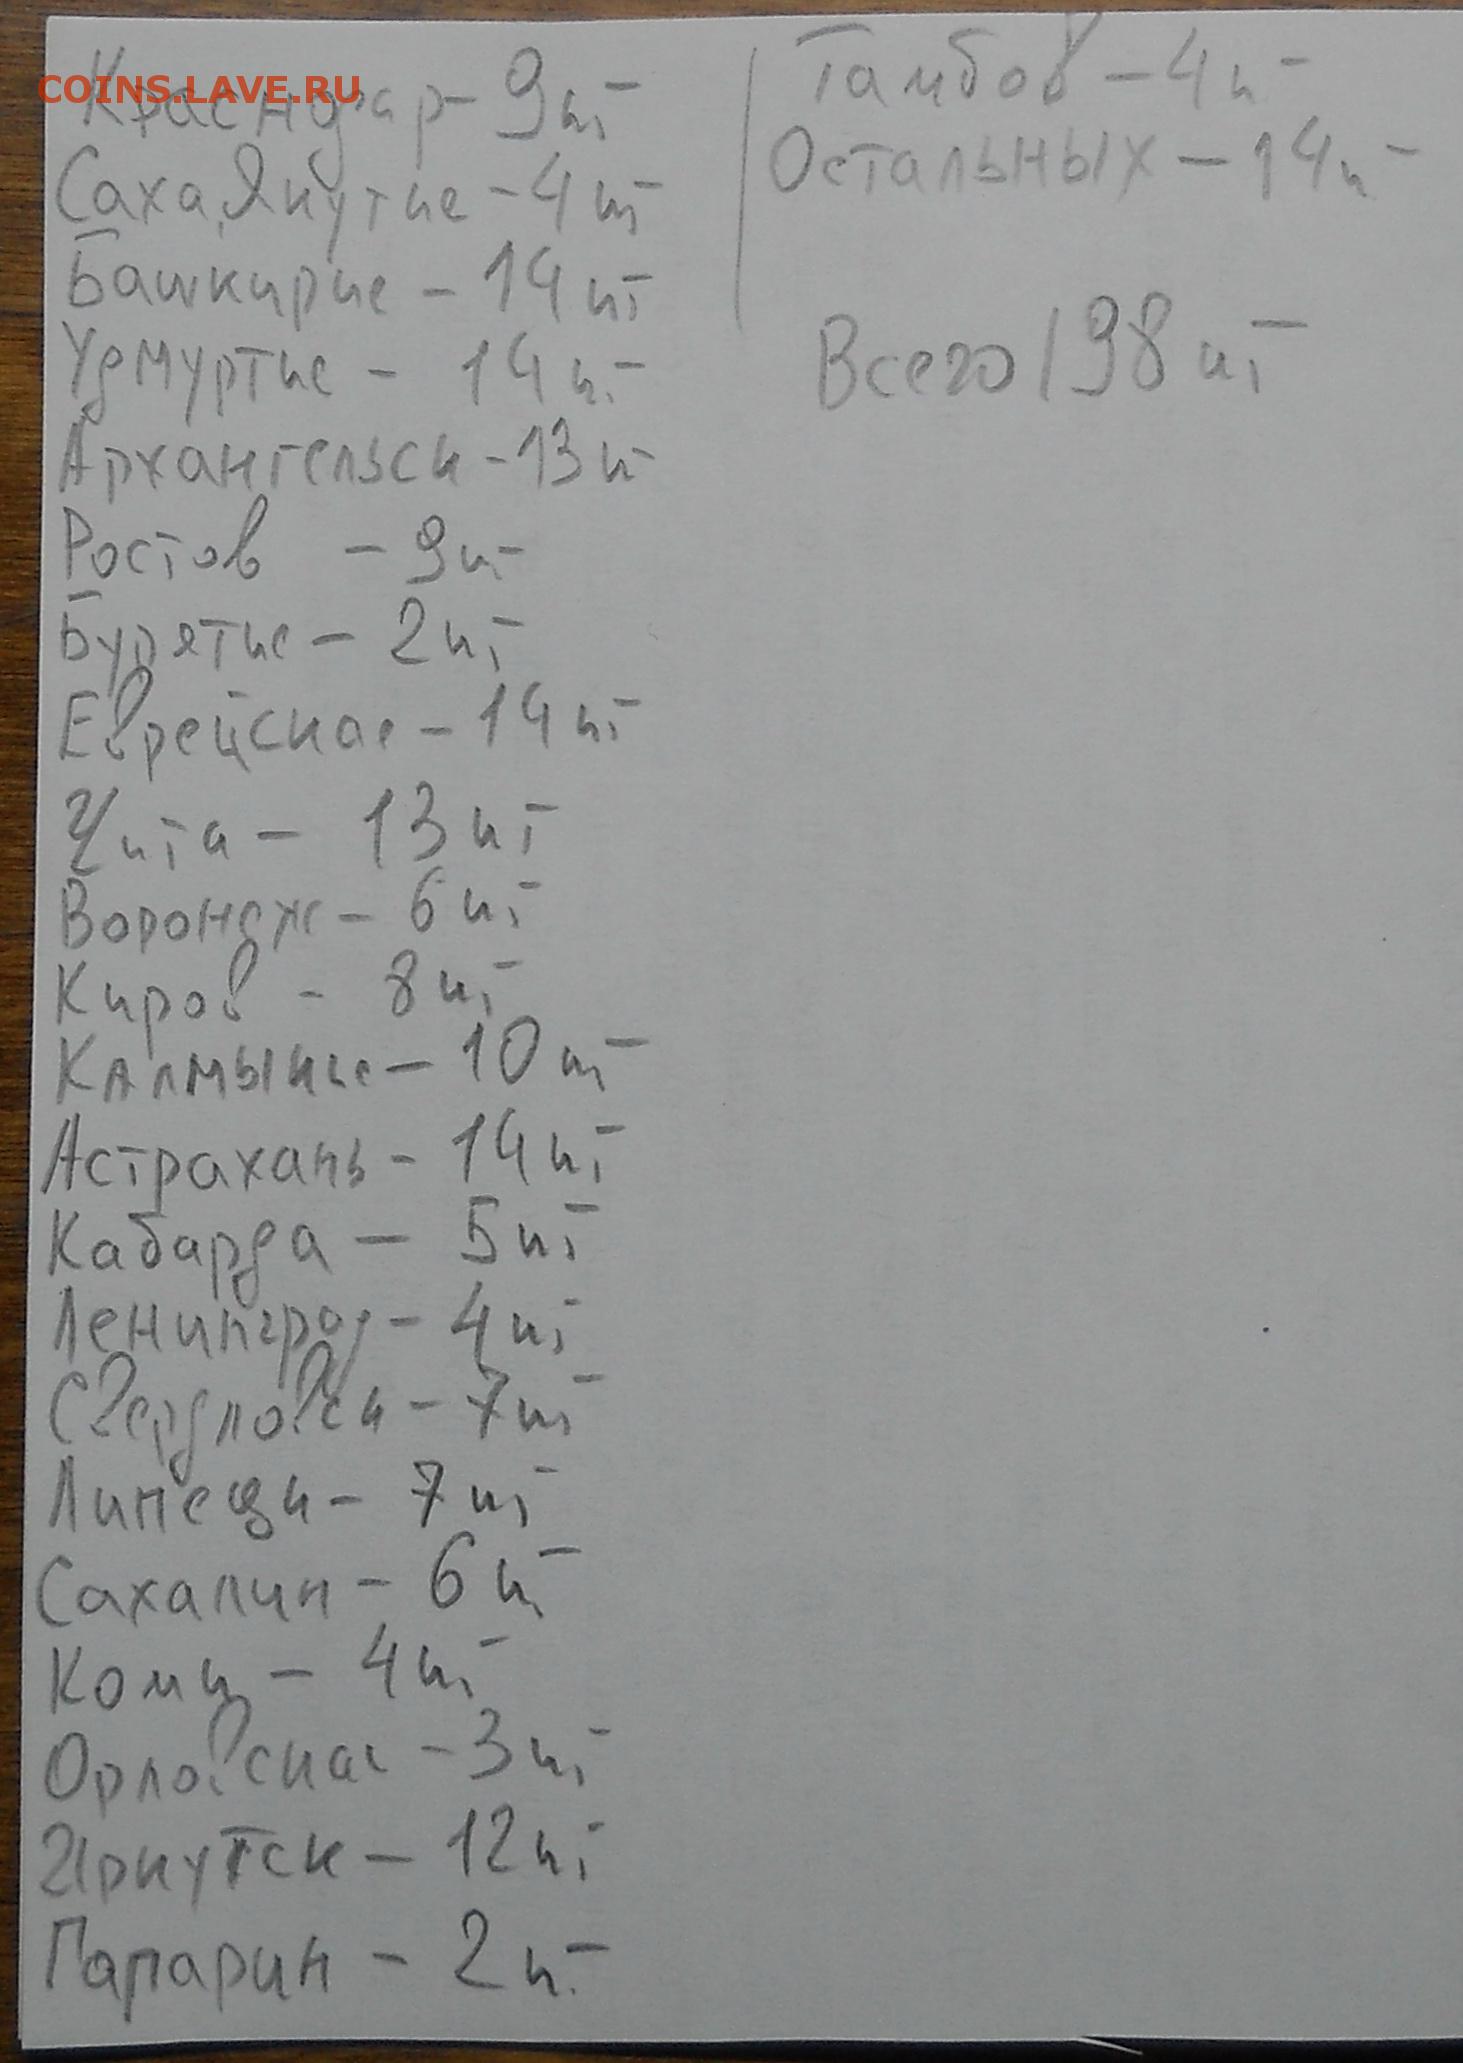 COINS.LAVE.RU
Краснодар - 9шт
Саха,Якутие - 4 шт
Башкирие - 14 шт
Удмуртие - 14 шт
Архангельск - 13 шт
Ростов - 9шт
Бурятие - 2шт
Еврейская - 14 шт
Чита - 13 шт
Воронеж - 6 шт
Киров - 8 шт
Калмыкие - 10 шт
Астрахань - 14 шт
Кабарда - 5 шт
Ленинград - 4 шт
Свердловск - 7 шт
Липецк - 7 шт
Сахалин - 6 шт
Коми - 4 шт
Орловская - 3 шт
Иркутск - 12 шт
Гагарин - 2 шт
Тамбов - 4 шт
Остальных - 14 шт
Всего 198 шт